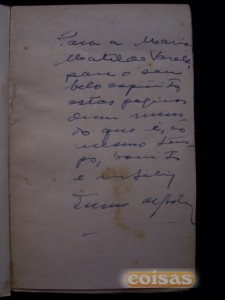 Para a Maria
Matilde
para o seu
belo espirito
estas paginas
dum mun-
do que é, ao
mesmo tem-
po, bonito
e infeliz
coisas